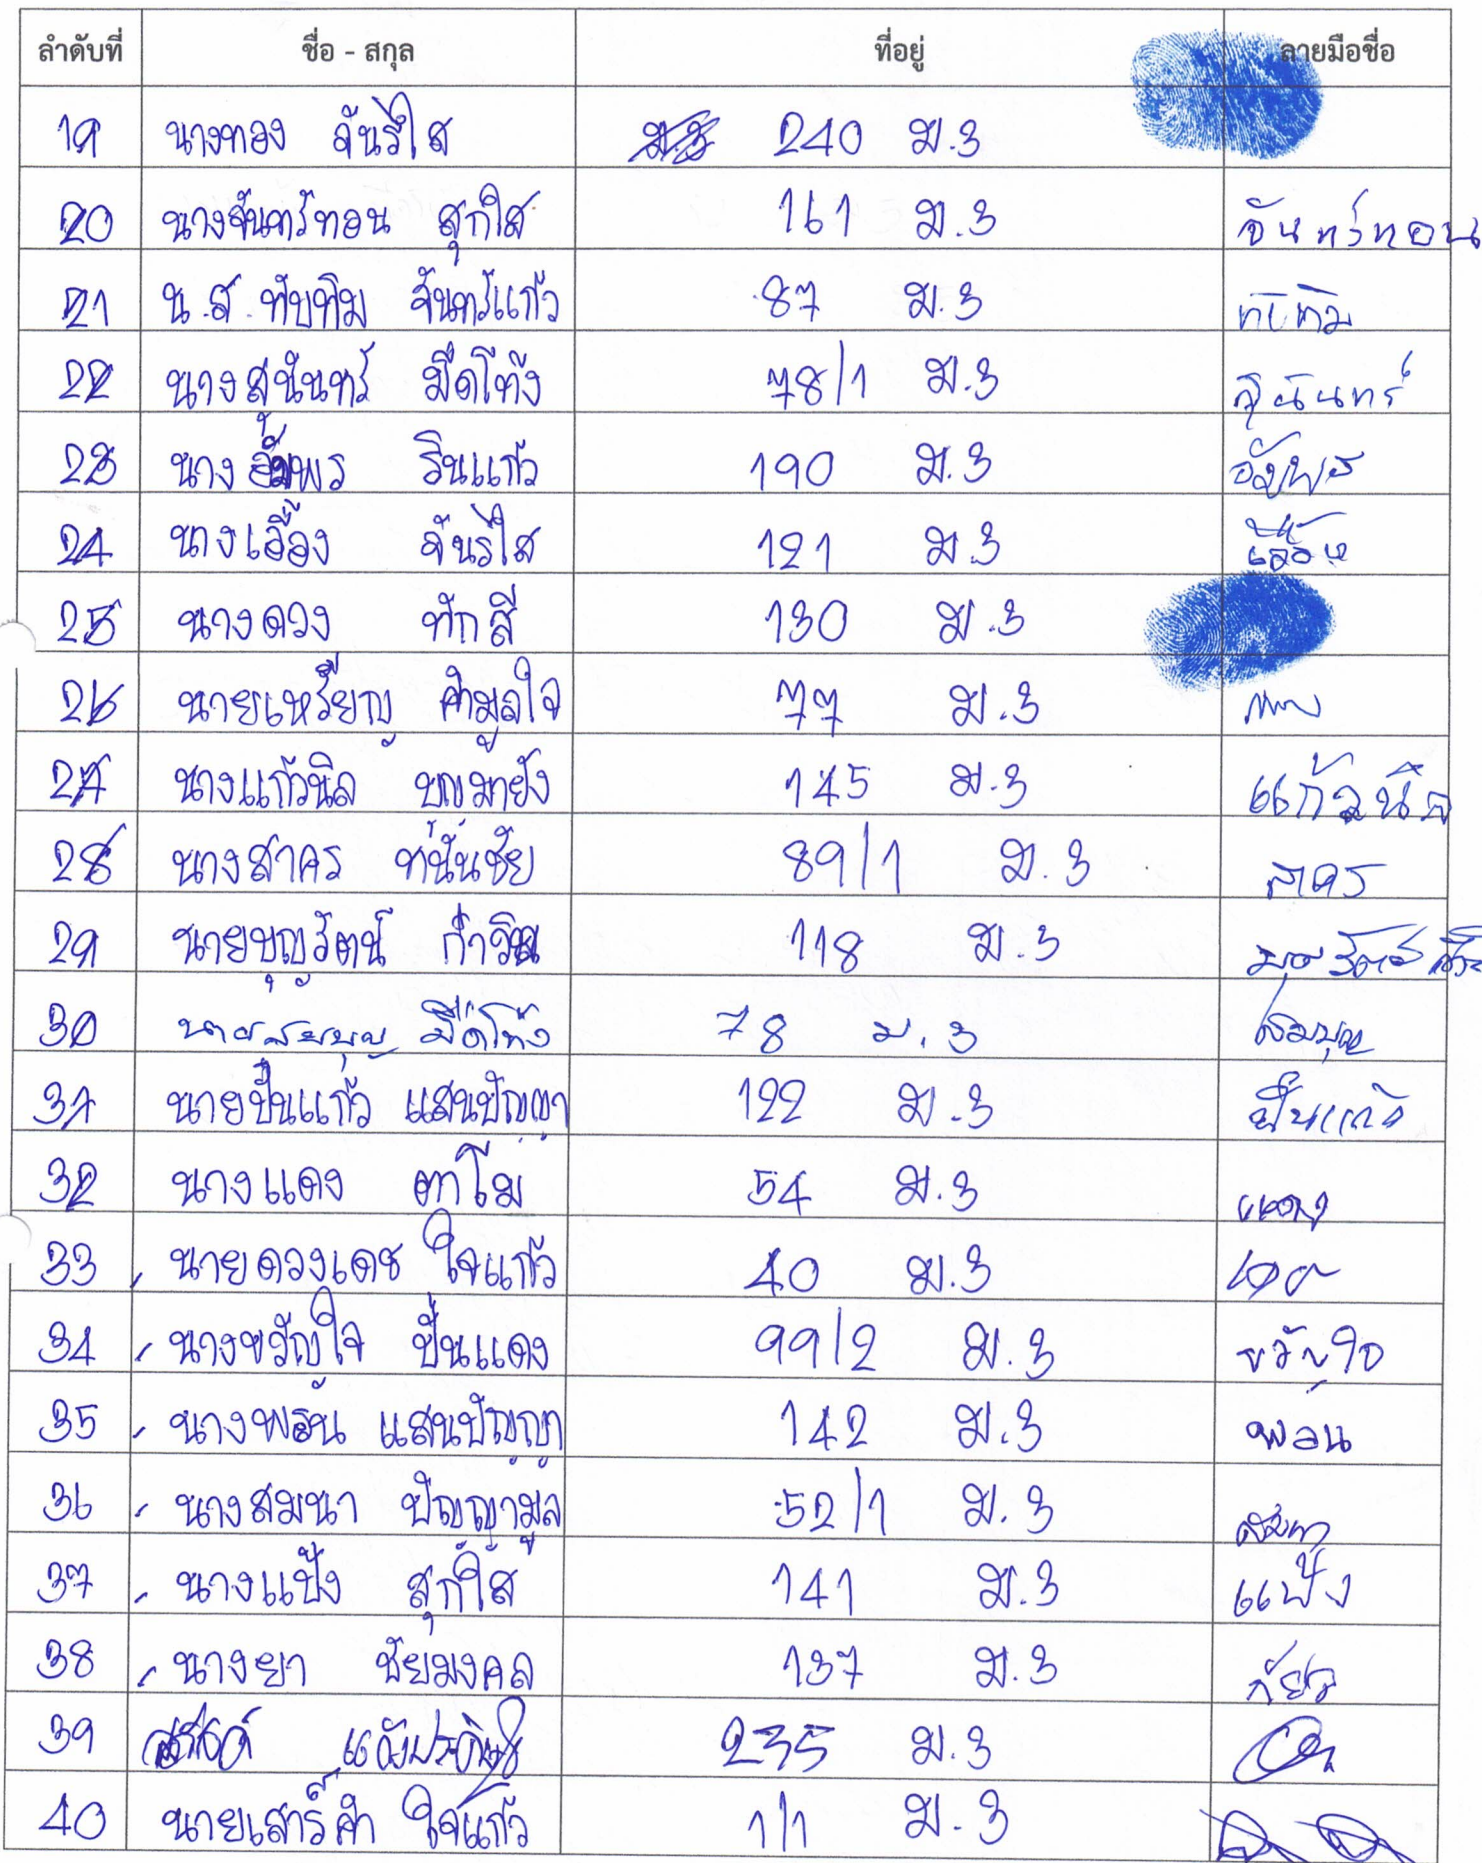 ลำดับที่ ชื่อ - สกุล ที่อยู่ ลายมือชื่อ
19 นางทอง จันร์ใส 240 ม.3
20 นางจันทร์ทอน สุกใส 161 ม.3 จันทร์ทอน
21 น.ส. ทับทิม จันทร์แก้ว 87 ม.3 ทับทิม
22 นางสุนันทร์ มืดโท๊ง 78/1 ม.3 สุนันทร์
23 นางอัมพร รินแก้ว 190 ม.3 อัมพร
24 นางเอื้อง จันร์ใส 121 ม.3
25 นางดวง ทักสี 130 ม.3
26 นายเหรียญ คำมูลใจ 77 ม.3
27 นางแก้วนิล บุญมายัง 145 ม.3 แก้วนิล
28 นางสาคร ท่นั้นชัย 89/1 ม.3 สาคร
29 นายบุญรัตน์ ก๋าวิน 118 ม.3
30 นายสมบุญ มืดโท๊ง 78 ม.3 สมบุญ
31 นายปั๋นแก้ว แสนปัญญา 122 ม.3 ปั๋นแก้ว
32 นางแดง ตาโม 54 ม.3 แดง
33 นายดวงเดช ใจแก้ว 40 ม.3
34 นางขวัญใจ ปื่นแดง 99/2 ม.3 ขวัญใจ
35 นางพอ้น แสนปัญญา 142 ม.3 พอ้น
36 นางสมนา ปัญญามูล 52/1 ม.3 สมนา
37 นางแป้ง สุกใส 141 ม.3 แป้ง
38 นางยา ชัยมงคล 137 ม.3
39 235 ม.3
40 นายเสาร์คำ ใจแก้ว 1/1 ม.3